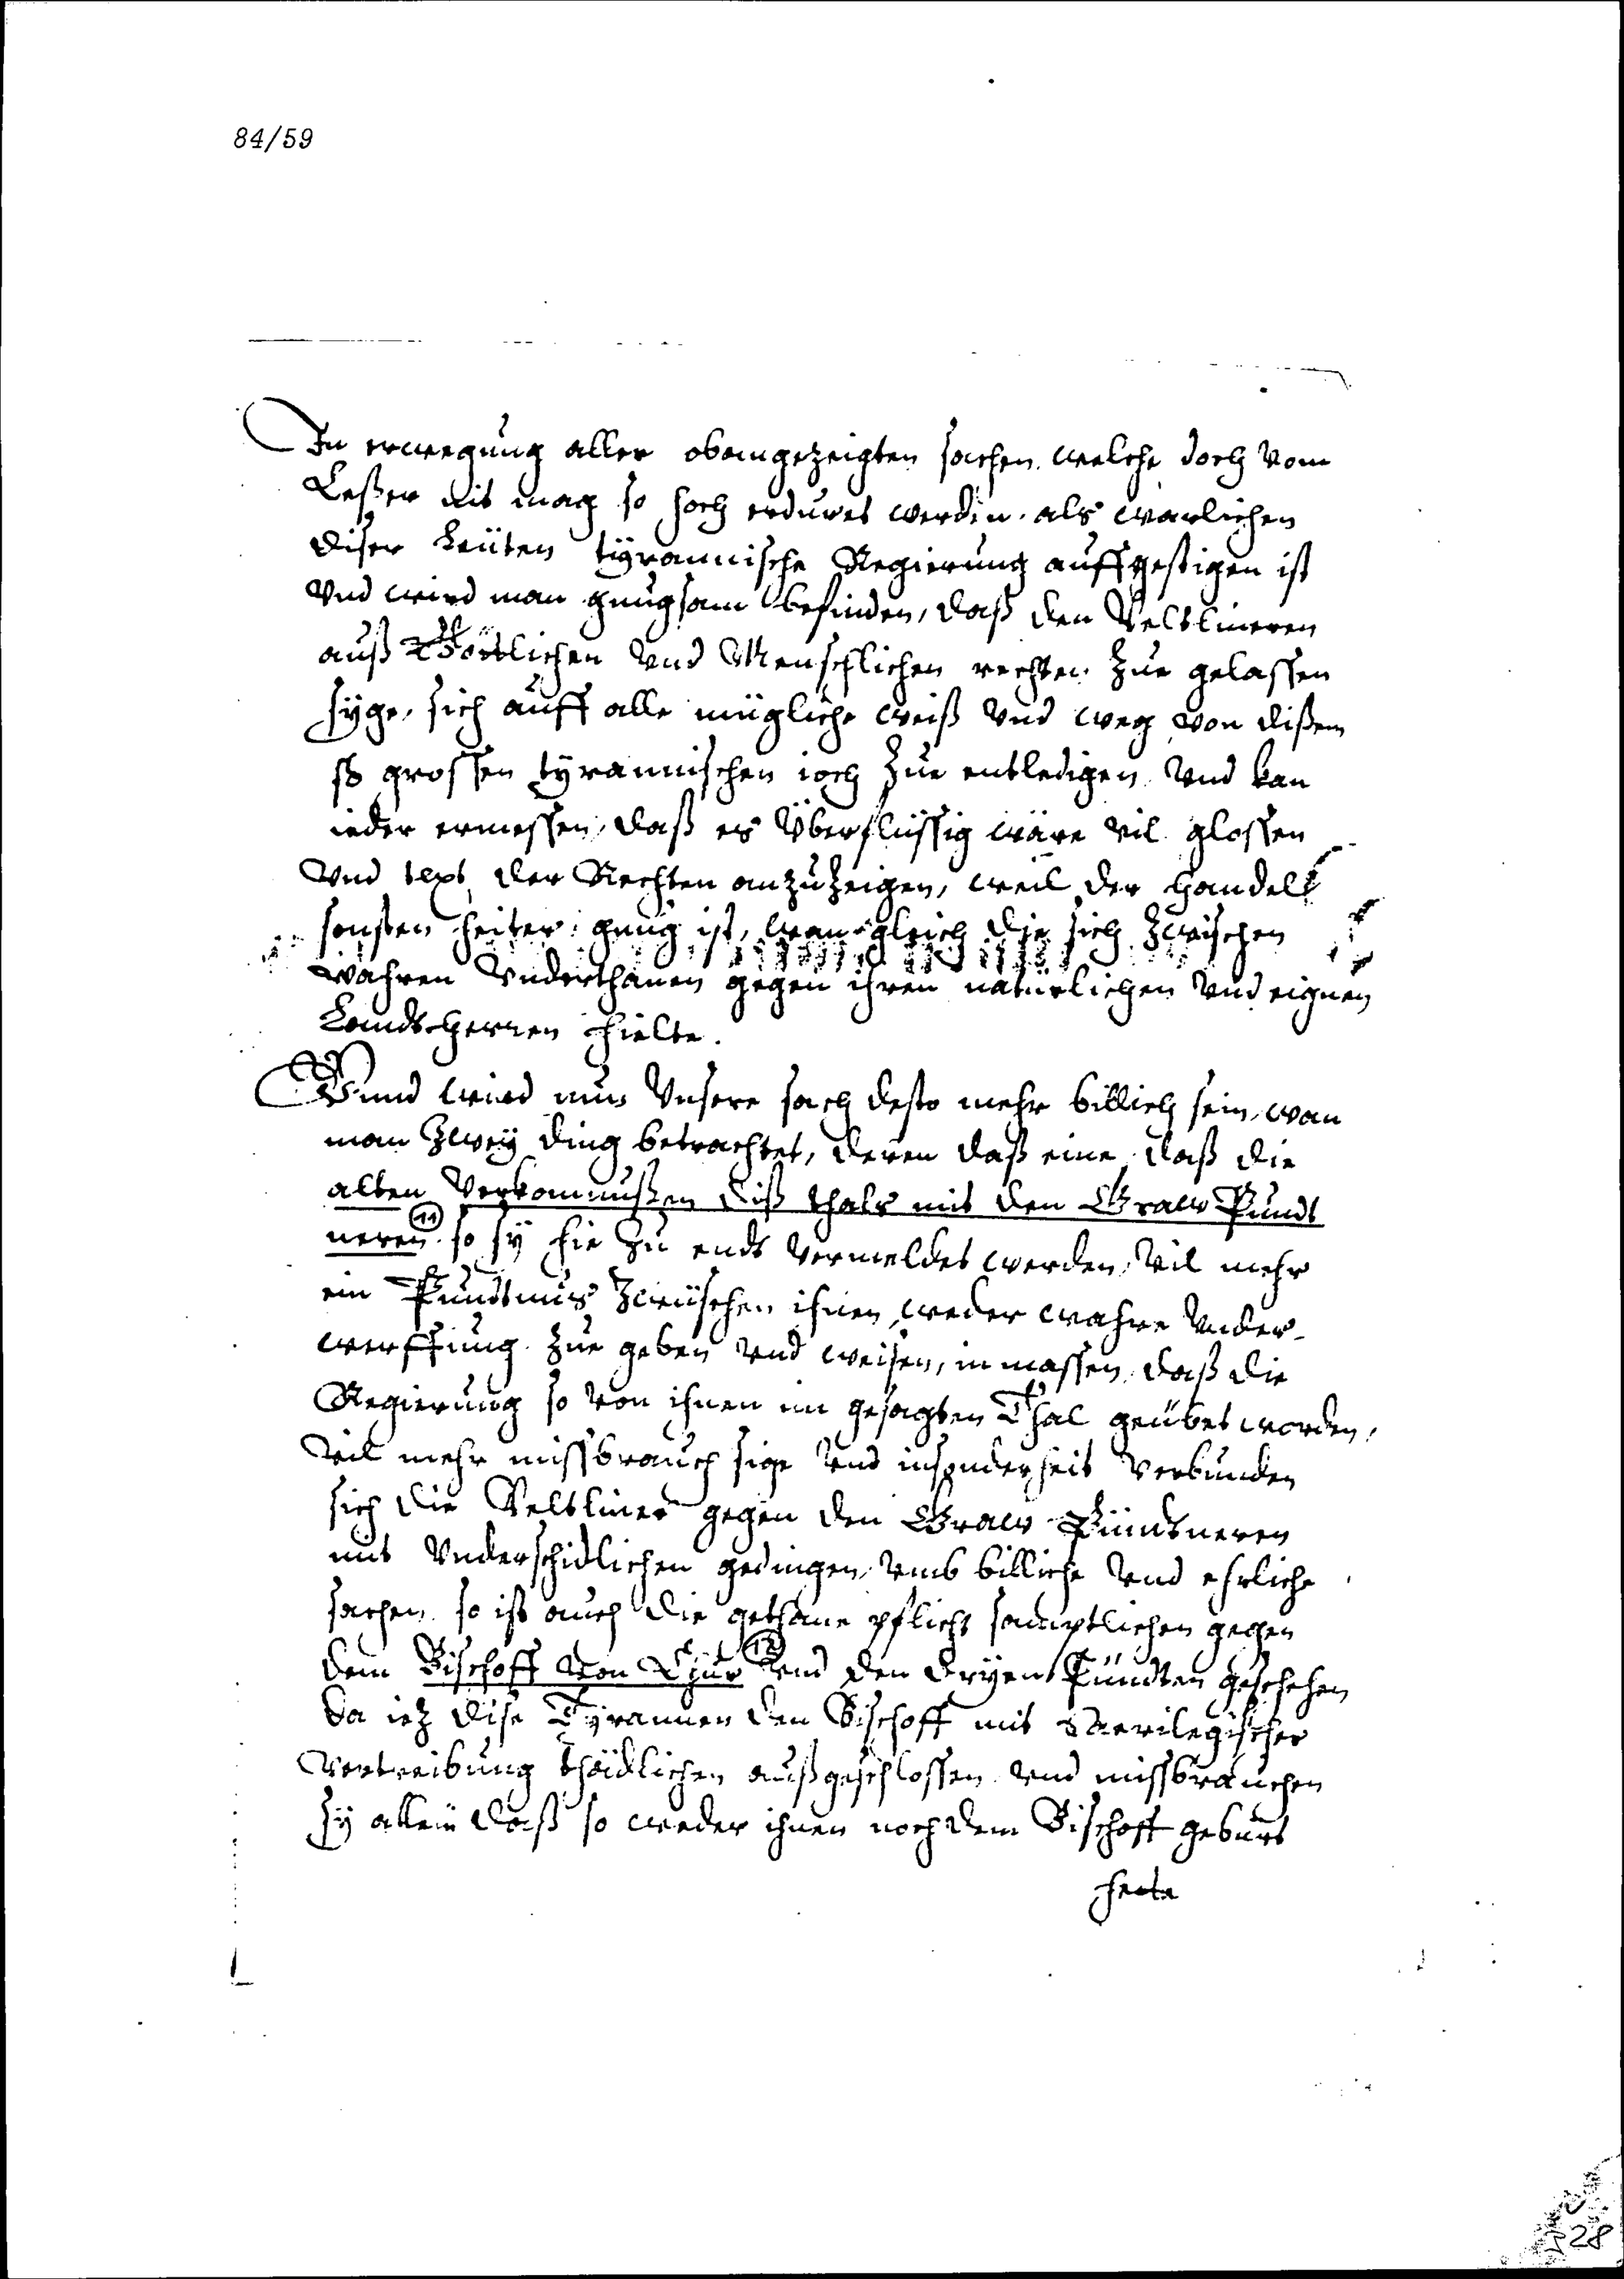 84/59
In erwegung aller obangezeigten sachen welche doch vom
Leßer nit mag so hoch erduret werden. als warlichen
diser Leüten tÿrannische Regierung auffgestigen ist
Vnd wird man gnugsam befinden, daß den Veltlineren
auß Göttlichen Vnd Menschlichen rechten zue gelassen
sÿge, sich auff alle mügliche weiß Vnd weg von dißem
so grossen tÿrannischen ioch zue entledigen Vnd kan
ieder ermessen, daß es Überflüssig wäre vil glossen
Vnd text der Rechten anzuzeigen, weil der handell
sonsten heiter gnug ist, wan gleich die sich zwischen
wahren Vnderthanen gegen ihren natürlichen Vnd eignen
Landtsherren hielte.
Vnnd wird nun Vnsere sach desto mehr billich sein, wan
man zweÿ ding betrachtet, deren daß eine daß die
alten Verkomnußen diß thals mit den Graw Pundt
neren 11 so sÿ hie zu endt Vermeldet werden, vil mehr
ein Pundtnus zwüschen ihnen, weder wahre Vnder-
werffung zue geben Vnd weisen, in massen daß die
Regierung so von ihnen im gesagten Thal geübet worden,
vil mehr missbrauch sige Vnd insonderheit Verbunden
sich die Veltliner gegen den Graw Pündtneren
mit Vnderschidlichen gedingen, vmb billiche Vnd ehrliche
sachen so ist auch die gethane pflicht samptlichen gegen
dem Bischoff von Chur 12 vnd den dryen Pündten geschehen
Da ietz dise Tÿrannen den Bischoff mit sacrilegischer
Vertreibung thädlichen außgeschlossen vnd missbrauchen
sÿ allein daß so weder ihnen noch dem Bischoff geburt
hette
28